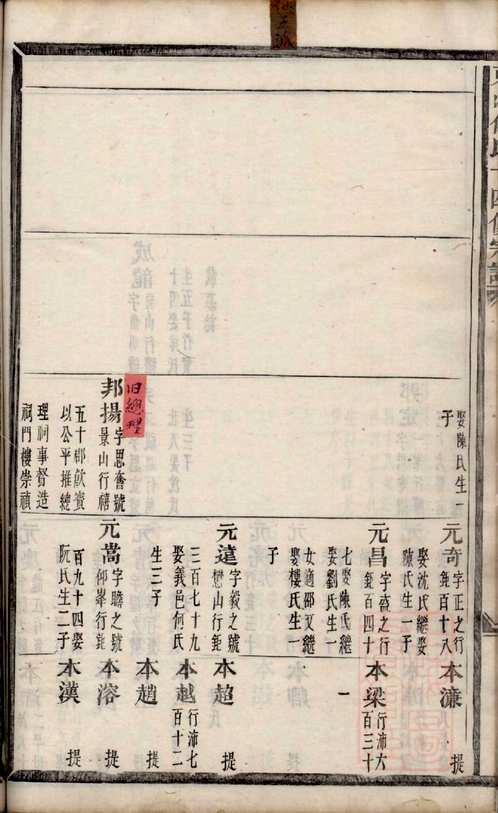 娶陳氏生
子
旧總理
邦揚
字思奮號
景山行禧
五十鄉飲賓
以公平推總
理祠事督造
祠門樓崇禎
元奇
字正之行
鉅百十八
娶沈氏繼娶
陳氏生一子
元昌
行鉅百四十
七娶陳氏繼
娶劉氏生一
女適邵又繼
娶樓氏生一
子
元達
字毅之號
懋山行鉅
三百七十九
娶義邑何氏
生三子
元嵩
字瞻之號
仰峯行鉅
百九十四娶
阮氏生二子
本濂
提
本梁
行沛六
百三十
一
提
本超
提
本越
行沛七
百十二
本趙
提
本溶
提
本漢
提